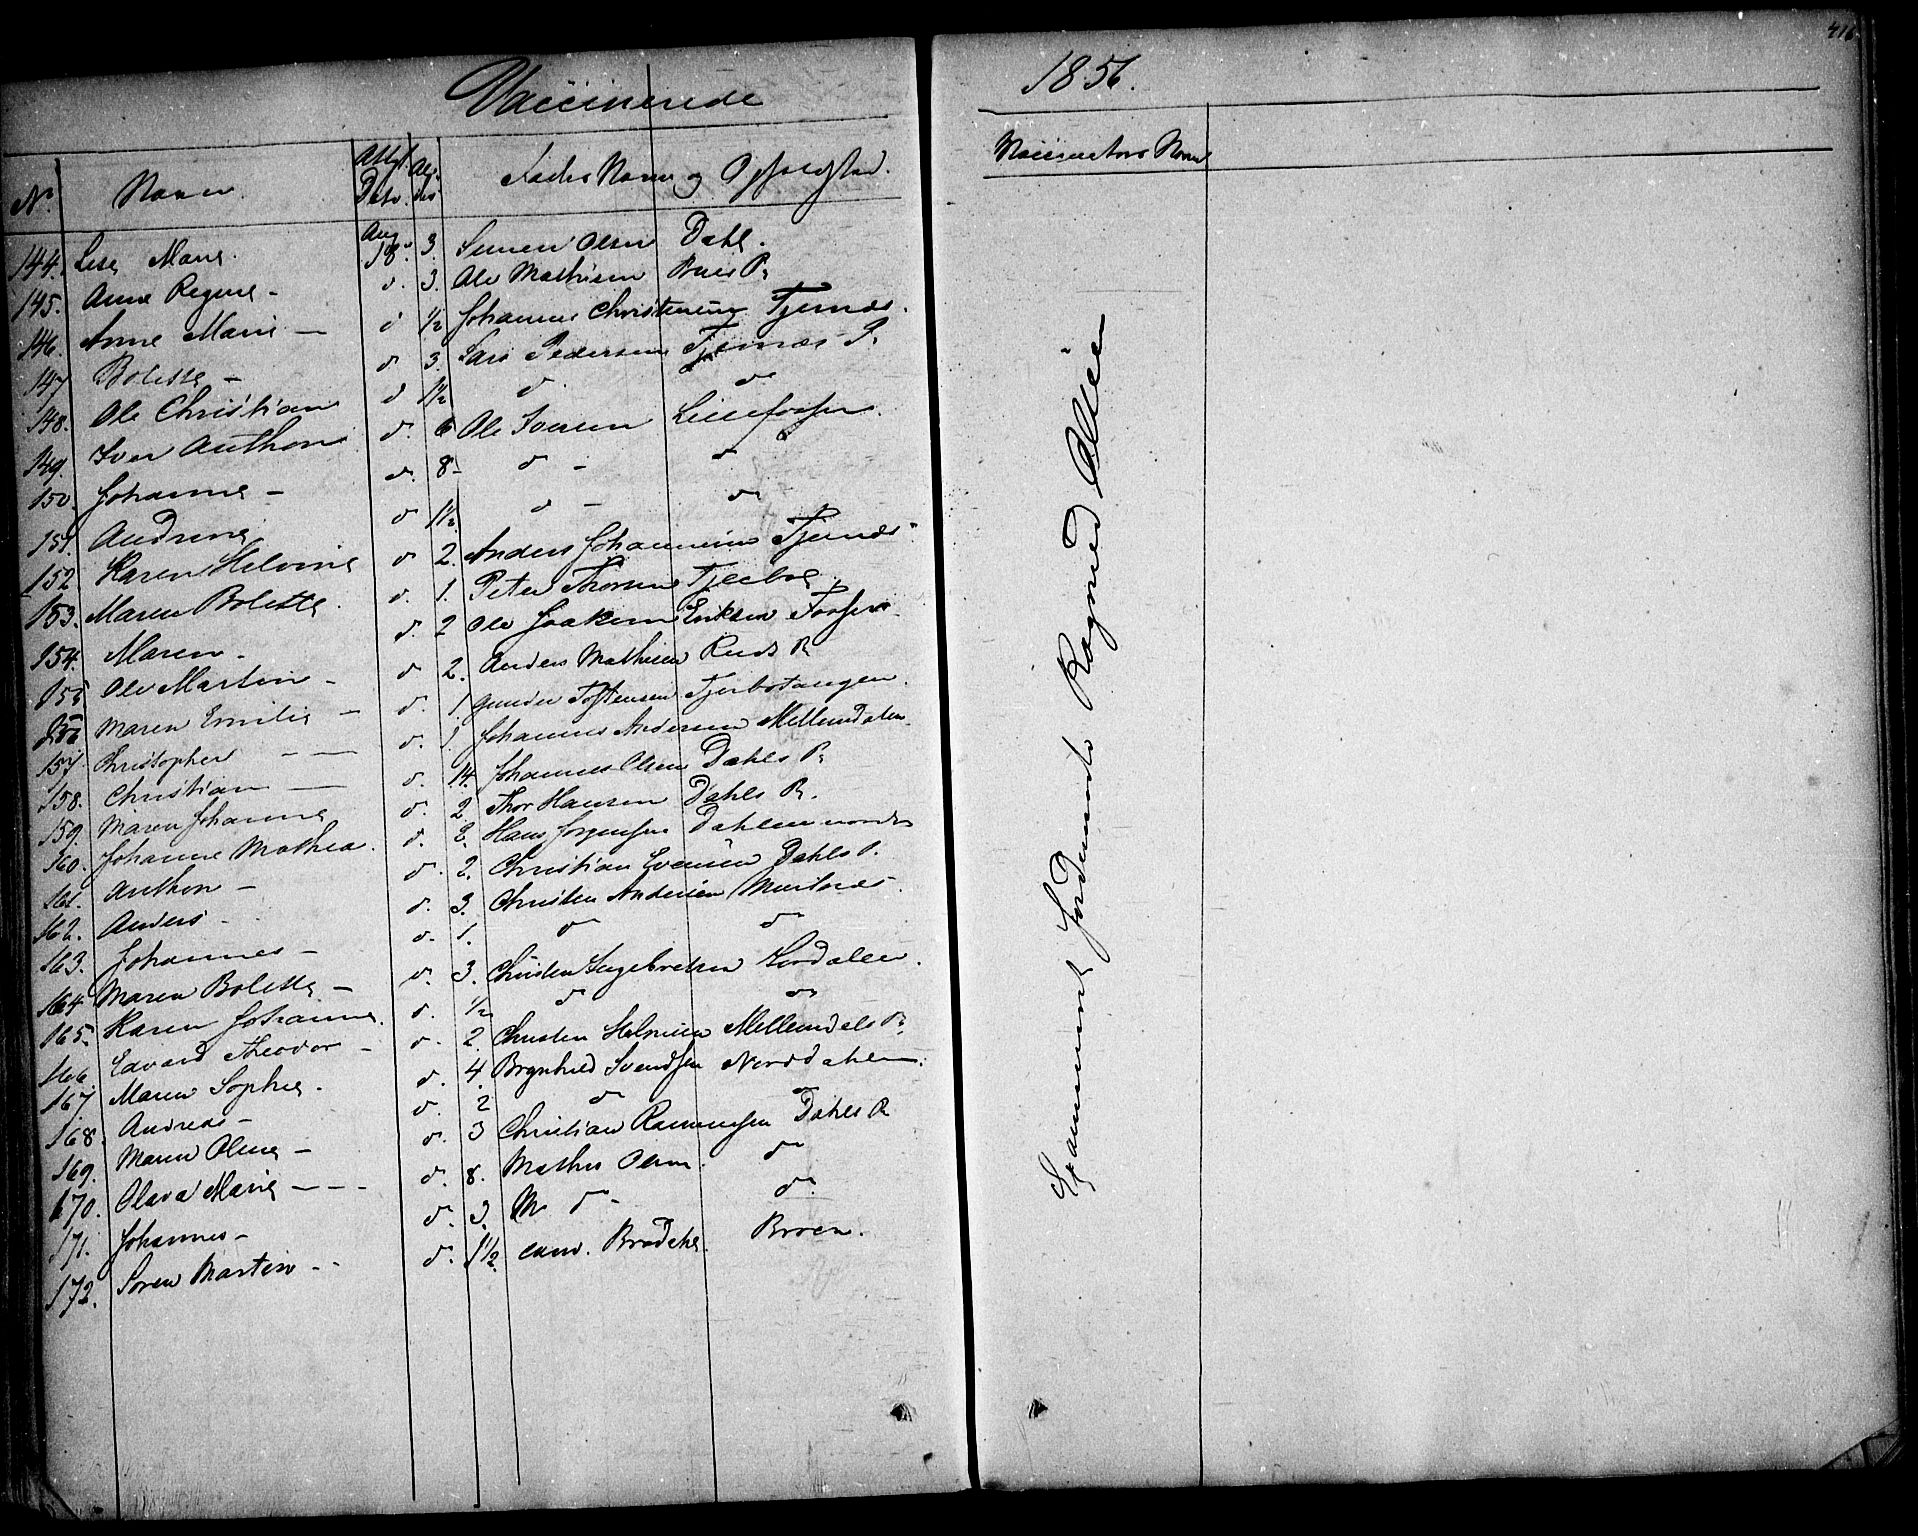 Vaccinerede
1856.
No. Navn. Att. Dato. Alder Faders Navn og Opholdsted.
Vaccinators Navn
144. Lise Marie. Aug. 18. 3. Simen Olsen Dahl.
145. Anne Regine - d. 3. Ole Mathisen Brues P.
146. Anne Marie - d 1/2 Johannes Christensen Tjernæs.
147 Bolette - d. 3. Lars Pedersen Tjernæs P.
148. Ole Christian d 1 1/2 d. d
149. Iver Anthon d. 6 Ole Iversen Lillefossen.
150. Johanne - d. 8- d - d
151. Andrine d 1 1/2. d - d
152. Karen Helvine d 2. Anders Johannesen Tjernæs.
153. Maren Bolette. d. 1. Peter Thorsen Tjeebol
154. Maren - d. 2 Ole Joakim Eriksen Fossen
155 Ole Martin - d 2. Anders Mathisen Ruds P.
156 Maren Emilie - d. 1 Gunder Toftensen Tjerbotangen.
157. Christopher - - d. 1. Johannes Andersen Mellemdalen.
158. Christian - d. 14. Johannes Olsen Dahls P.
159. Maren Johanne d. 2 Thor Hansen Dahls P.
160. Johanne Mathea. d. 2. Hans Jørgensen Dahlen nordre
161. Anthon - d. 2. Christian Evensen Dahls P.
162. Anders - d. 3. Christen Andersen
163. Johannes - d. 1. d d
164 Maren Bolette - d. 3. Christen Ingebretsen Nordalen.
165. Karen Johanne. d. 1/2 d d
166 Edvard Theodor - d. 2. Christen Helviesen Mellemdals P.
167. Maren Sophie. d. 4. Brynhild Svendsen Norddahlen.
168. Andreas - d. 2 d d
169. Maren Oline - d. 3 Christian Rasmussen Dahls P.
170. Olava Marie - - - d. 8. Mathis Olsen. d
171. Johannes - d. 3. M. d - d.
172. Søren Martin - - d. 1 1/2. Brodahl. Broen.
Examineret Jordemoder Ragnild Olsen